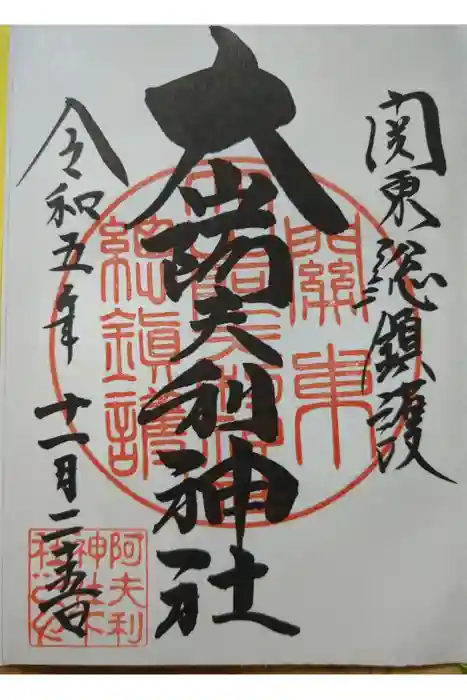 関東総鎮護
大山阿夫利神社
令和五年 十一月二十五日
關東
總鎮護
阿夫利
神社下